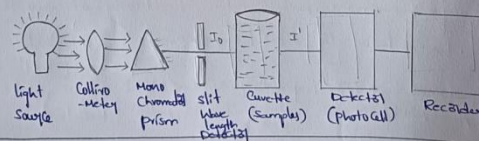 I₀ I'
Light
Source
Collimo
-Meter
Mono
Chromator
prism
slit
Wave
length
Detector
Cuvette
(samples)
Detector
(photocell)
Recorder